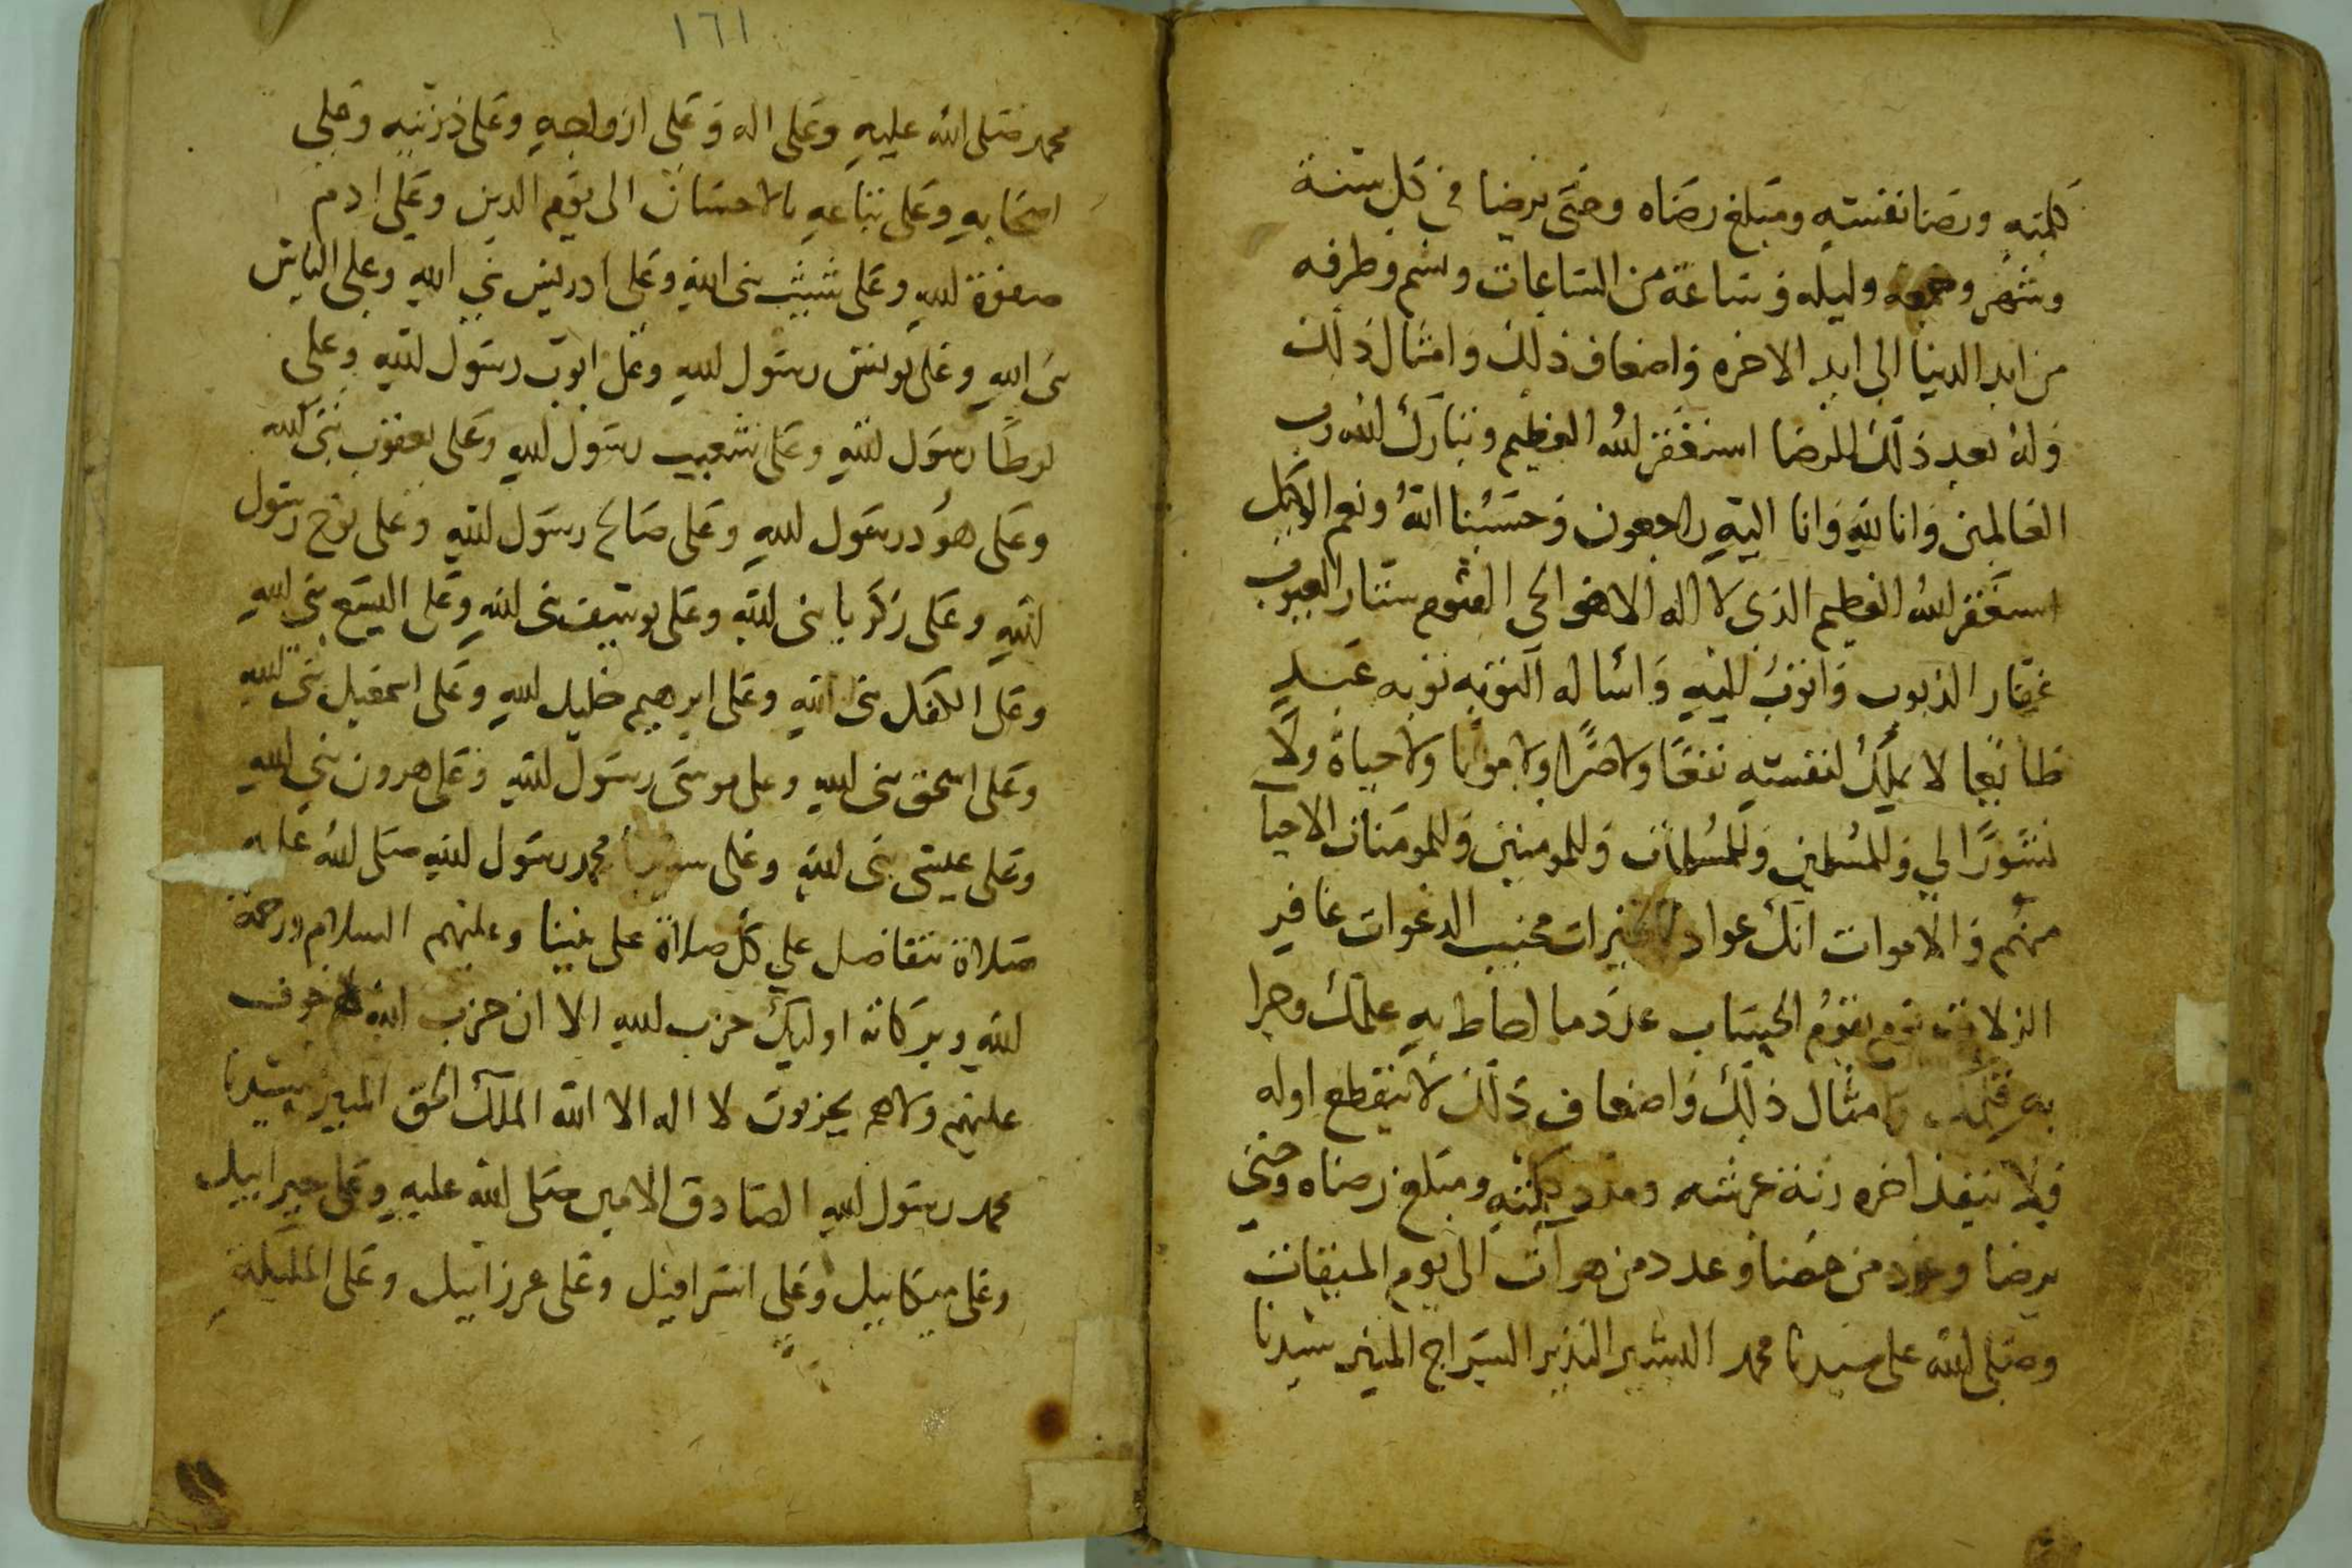 كلمته ورضا نفسه ومبلغ رضاه وحتى يرضا في كل سنة
وشهر وجمعه وليله وساعة من الساعات وشم وطرفه
من ابد الدنيا الى ابد الاخره واضعاف ذلك وامثال ذلك
وله بعد ذلك الرضا استغفر الله العظيم وتبارك الله رب
العالمين وانا لله وانا اليه راجعون وحسبنا الله ونعم الوكيل
استغفر الله العظيم الذي لا اله الا هو الحي القيوم ستار العيوب
غفار الذنوب واتوب اليه واساله التوبه توبه عبد
لا يملك لنفسه نفعا ولا ضرا ولا موتا ولا حياة ولا
نشورا لي وللمسلمين وللمسلمات وللمومنين وللمومنات الاحيا
منهم والاموات انك عواد بالخيرات مجيب الدعوات غافر
الزلات يوم يقوم الحساب عدد ما احاط به علمك وجرا
به قلمك وامثال ذلك واضعاف ذلك لا ينقطع اوله
ولا ينفذ اخره زنة عرشه ومدد كلمته ومبلغ رضاه وحتى
يرضا وعدد من مضا وعدد من هو آت الى يوم الميقات
وصلى الله على سيدنا محمد البشير النذير السراج المنير سيدنا
١٦١
محمد صلى الله عليه وعلى اله وعلى ازواجه وعلى ذريته وعلى
اصحابه وعلى تباعه بالاحسان الى يوم الدين وعلى ادم
صفوة الله وعلى شيث نبي الله وعلى ادريس نبي الله وعلى الياس
نبي الله وعلى يونس رسول الله وعلى ايوب رسول الله وعلى
لوطا رسول الله وعلى شعيب رسول الله وعلى يعقوب نبي الله
وعلى هود رسول الله وعلى صالح رسول الله وعلى نوح رسول
الله وعلى زكريا نبي الله وعلى يوسف نبي الله وعلى اليسع نبي الله
وعلى الكفل نبي الله وعلى ابرهيم خليل الله وعلى اسمعيل نبي الله
وعلى اسحق نبي الله وعلى موسى رسول الله وعلى هرون نبي الله
وعلى عيسى نبي الله وعلى سيدنا محمد رسول الله صلى الله عليه
صلاة تتفاضل علي كل صلاة على نبينا وعليهم السلام ورحمة
الله وبركاته اوليك حزب الله الا ان حزب الله لا خوف
عليهم ولا هم يحزنون لا اله الا الله الملك الحق المبين سيدنا
محمد رسول الله الصادق الامين صلى الله عليه وعلى جبراييل
وعلى ميكاييل وعلى اسرافيل وعلى عزراييل وعلى المليكة